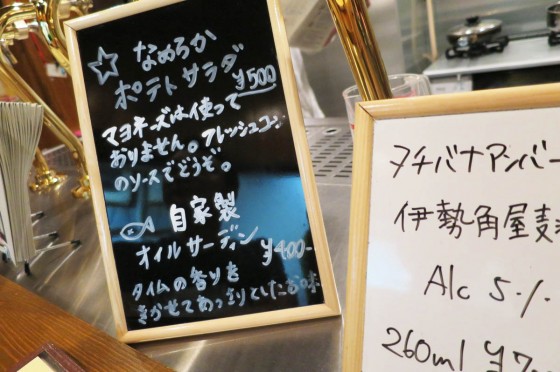 ☆ なめらか
ポテトサラダ
¥500
マヨネーズは使って
おりません。フレッシュコーン
のソースでどうぞ。
自家製
オイルサーディン ¥400-
タイムの香りを
きかせてあっさりとしたお味
ヌチバナアンバー
伊勢角屋麦
Alc 5.%
260ml ¥7